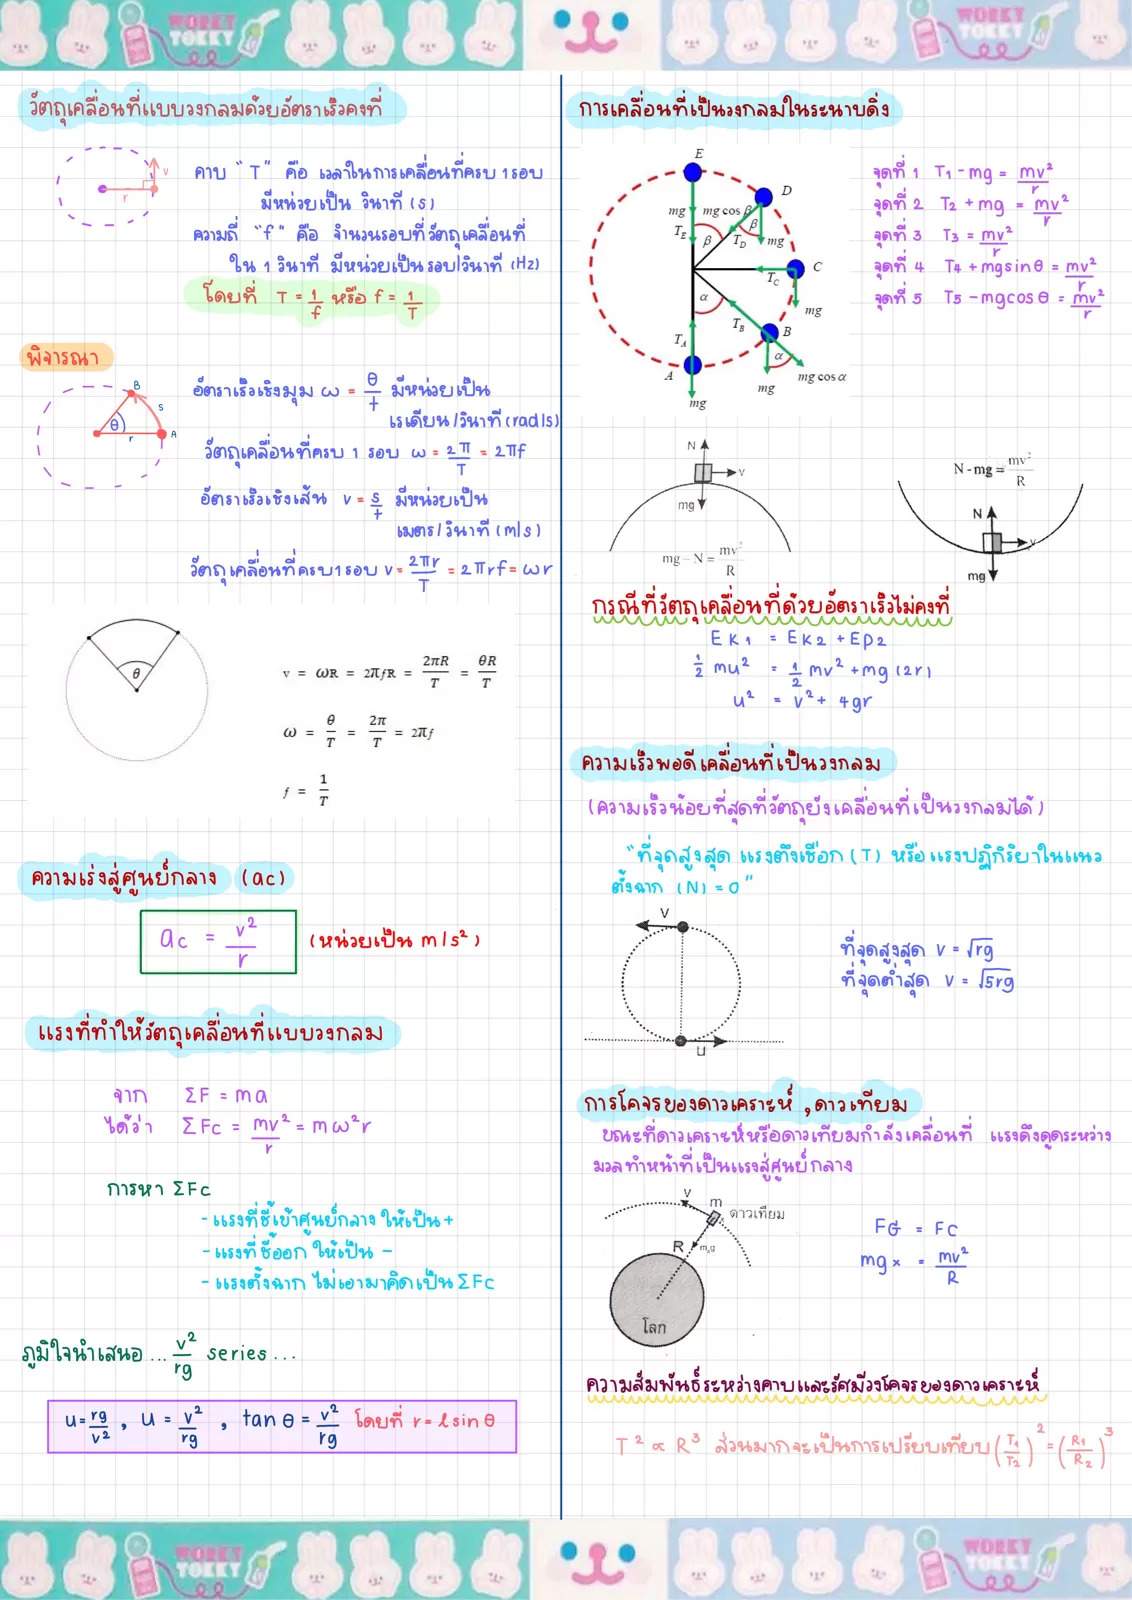 WORKY
TOKKY
WORKY
TOKKY
วัตถุเคลื่อนที่แบบวงกลมด้วยอัตราเร็วคงที่
v
r
คาบ "T" คือ เวลาในการเคลื่อนที่ครบ 1 รอบ
มีหน่วยเป็น วินาที (s)
ความถี่ "f" คือ จำนวนรอบที่วัตถุเคลื่อนที่
ใน 1 วินาที มีหน่วยเป็นรอบ/วินาที (Hz)
โดยที่ T = 1/f หรือ f = 1/T
พิจารณา
B
s
θ
r
A
อัตราเร็วเชิงมุม ω = θ/t มีหน่วยเป็น
เรเดียน/วินาที (rad/s)
วัตถุเคลื่อนที่ครบ 1 รอบ ω = 2π/T = 2πf
อัตราเร็วเชิงเส้น v = s/t มีหน่วยเป็น
เมตร/วินาที (m/s)
วัตถุเคลื่อนที่ครบ 1 รอบ v = 2πr/T = 2πrf = ωr
θ
v = ωR = 2πfR = 2πR/T = θR/T
ω = θ/T = 2π/T = 2πf
f = 1/T
ความเร่งสู่ศูนย์กลาง (ac)
ac = v²/r
(หน่วยเป็น m/s²)
แรงที่ทำให้วัตถุเคลื่อนที่แบบวงกลม
จาก ΣF = ma
ได้ว่า ΣFc = mv²/r = mω²r
การหา ΣFc
- แรงที่ชี้เข้าศูนย์กลาง ให้เป็น +
- แรงที่ชี้ออก ให้เป็น -
- แรงตั้งฉาก ไม่เอามาคิดเป็น ΣFc
ภูมิใจนำเสนอ ... v²/rg series ...
u = rg/v² , u = v²/rg , tan θ = v²/rg โดยที่ r = ℓ sin θ
การเคลื่อนที่เป็นวงกลมในระนาบดิ่ง
E
D
mg
mg cos β
β
T_E
β
T_D
mg
C
T_C
α
mg
T_B
T_A
B
α
A
mg
mg cos α
mg
จุดที่ 1 T1 - mg = mv²/r
จุดที่ 2 T2 + mg = mv²/r
จุดที่ 3 T3 = mv²/r
จุดที่ 4 T4 + mgsin θ = mv²/r
จุดที่ 5 T5 - mgcos θ = mv²/r
N
v
mg
mg - N = mv²/R
N - mg = mv²/R
N
v
mg
กรณีที่วัตถุเคลื่อนที่ด้วยอัตราเร็วไม่คงที่
Ek1 = Ek2 + Ep2
1/2 mu² = 1/2 mv² + mg (2r)
u² = v² + 4gr
ความเร็วพอดีเคลื่อนที่เป็นวงกลม
(ความเร็วน้อยที่สุดที่วัตถุยังเคลื่อนที่เป็นวงกลมได้)
"ที่จุดสูงสุด แรงตึงเชือก (T) หรือแรงปฏิกิริยาในแนว
ตั้งฉาก (N) = 0"
V
u
ที่จุดสูงสุด v = √rg
ที่จุดต่ำสุด v = √5rg
การโคจรของดาวเคราะห์ , ดาวเทียม
ขณะที่ดาวเคราะห์หรือดาวเทียมกำลังเคลื่อนที่ แรงดึงดูดระหว่าง
มวลทำหน้าที่เป็นแรงสู่ศูนย์กลาง
v
m
ดาวเทียม
R
โลก
FG = Fc
mgx = mv²/R
ความสัมพันธ์ระหว่างคาบและรัศมีวงโคจรของดาวเคราะห์
T² ∝ R³ ส่วนมากจะเป็นการเปรียบเทียบ (T1/T2)² = (R1/R2)³
WORKY
TOKKY
WORKY
TOKKY